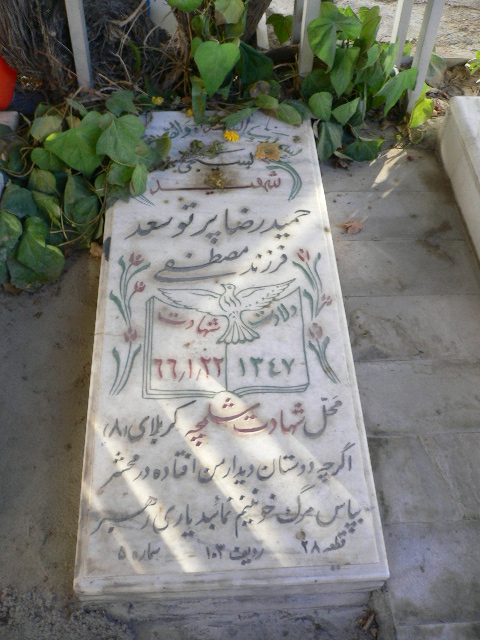 شهید
حمیدرضا پرتو سعد
فرزند مصطفی
ولادت شهادت
۱۳۴۷ ۶۶/۱/۲۲
محل شهادت شلمچه کربلای (۸)
اگرچه دوستان دیدار من افتاده در محشر
بپاس مرگ خونینم نمائید یاری رهبر
قطعه ۲۸ ردیف ۱۰۳ شماره ۵